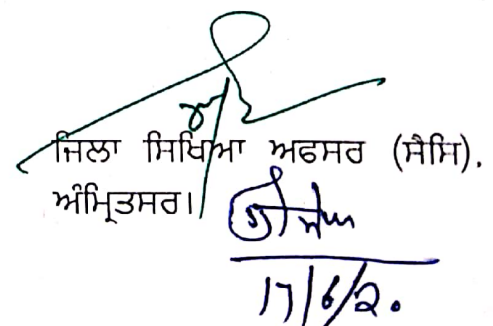 ਜਿਲਾ ਸਿਖਿਆ ਅਫਸਰ (ਸੈਸਿ).
ਅੰਮ੍ਰਿਤਸਰ।
17/6/20